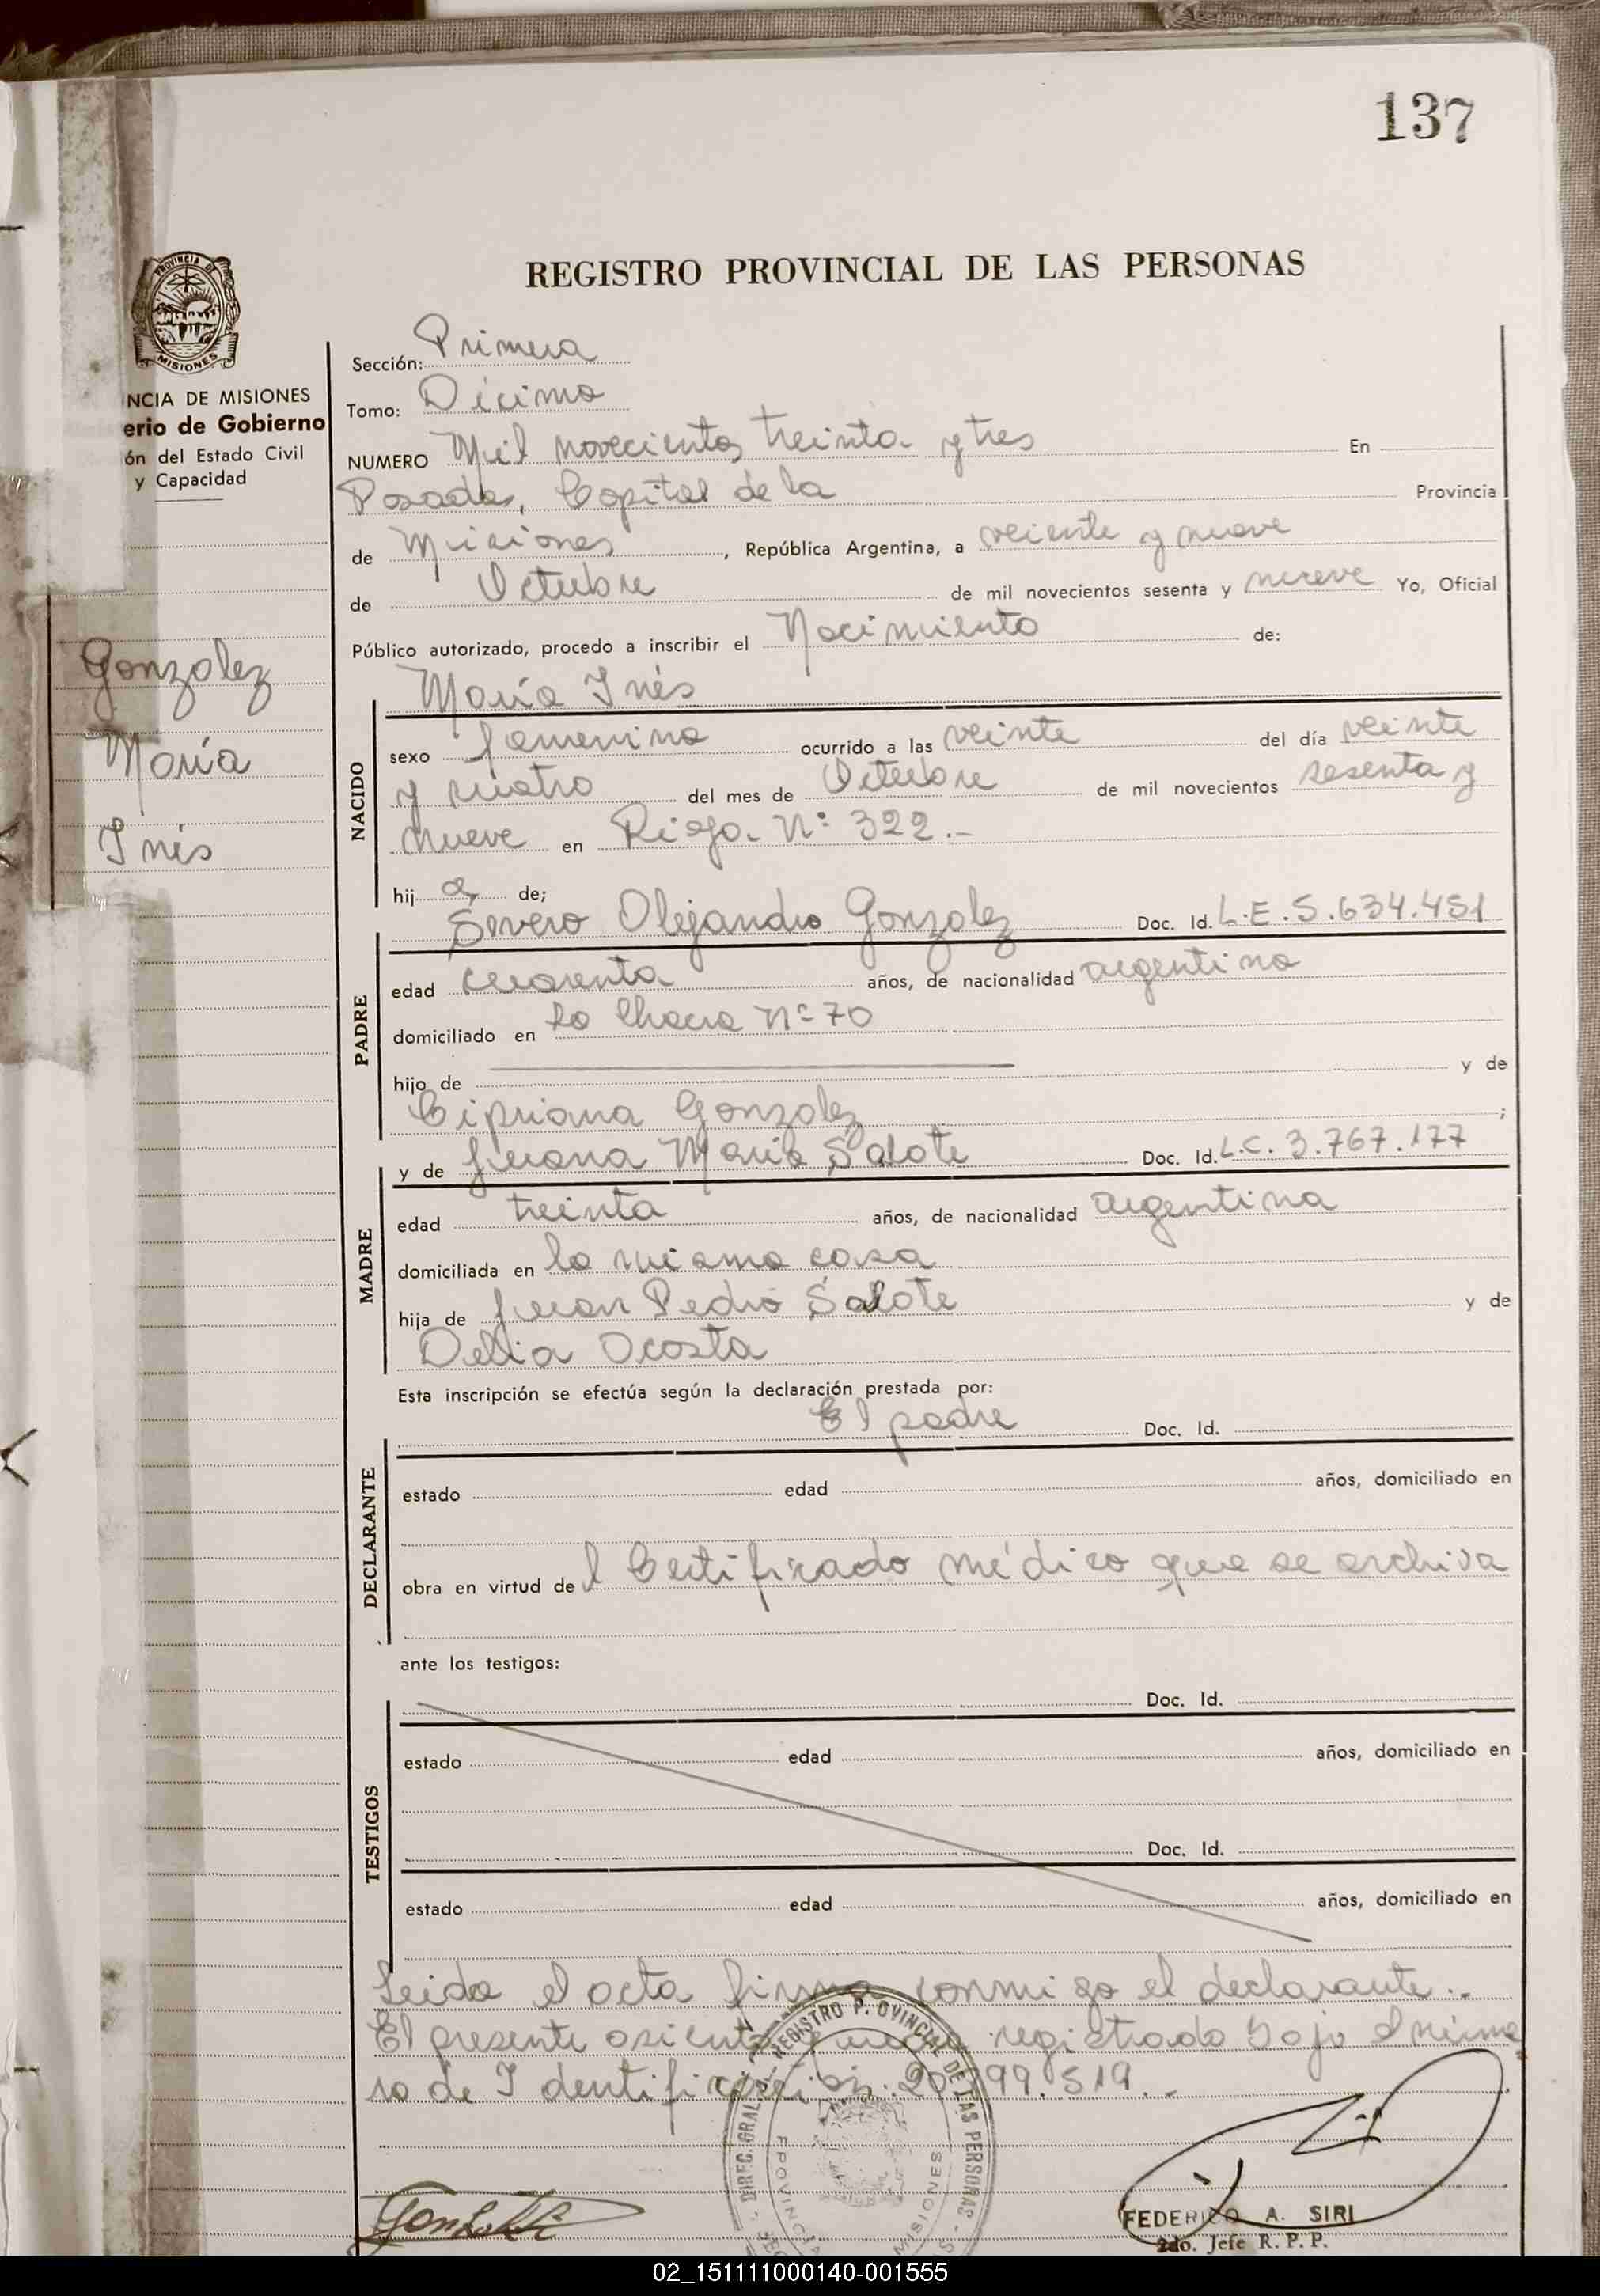 137
REGISTRO PROVINCIAL DE LAS PERSONAS
PROVINCIA D
MISIONES
NCIA DE MISIONES
erio de Gobierno
ón del Estado Civil
y Capacidad
Gonzalez
María
Inés
Sección: Primera
Tomo: Décimo
NUMERO Mil novecientos treinta y tres En
Posadas, Capital de la Provincia
de Misiones, República Argentina, a veinte y nueve
de Octubre de mil novecientos sesenta y nueve Yo, Oficial
Público autorizado, procedo a inscribir el Nacimiento de:
María Inés
NACIDO
sexo femenino ocurrido a las veinte del día veinte
y cuatro del mes de Octubre de mil novecientos sesenta y
nueve en Rioja Nº 322.-
hij a de;
Severo Alejandro Gonzalez Doc. Id. L.E. 5.634.451
PADRE
edad cuarenta años, de nacionalidad argentino
domiciliado en la Chacra Nº 70
hijo de y de
Cipriana Gonzalez ;
y de Juana María Salote Doc. Id. L.C. 3.767.177
MADRE
edad treinta años, de nacionalidad argentina
domiciliada en la misma casa
hija de Juan Pedro Salote y de
Delia Acosta
Esta inscripción se efectúa según la declaración prestada por:
El padre Doc. Id.
DECLARANTE
estado edad años, domiciliado en
obra en virtud de l Certificado médico que se archiva
ante los testigos:
Doc. Id.
TESTIGOS
estado edad años, domiciliado en
Doc. Id.
estado edad años, domiciliado en
Leida el acta firma conmigo el declarante..
El presente asiento queda registrado bajo el núme
ro de Identificación: 519.-
DIREC. GRAL. REGISTRO P. OVINCIAL DE LAS PERSONAS
MISIONES
FEDERICO A. SIRI
2do. Jefe R. P. P.
02_151111000140-001555